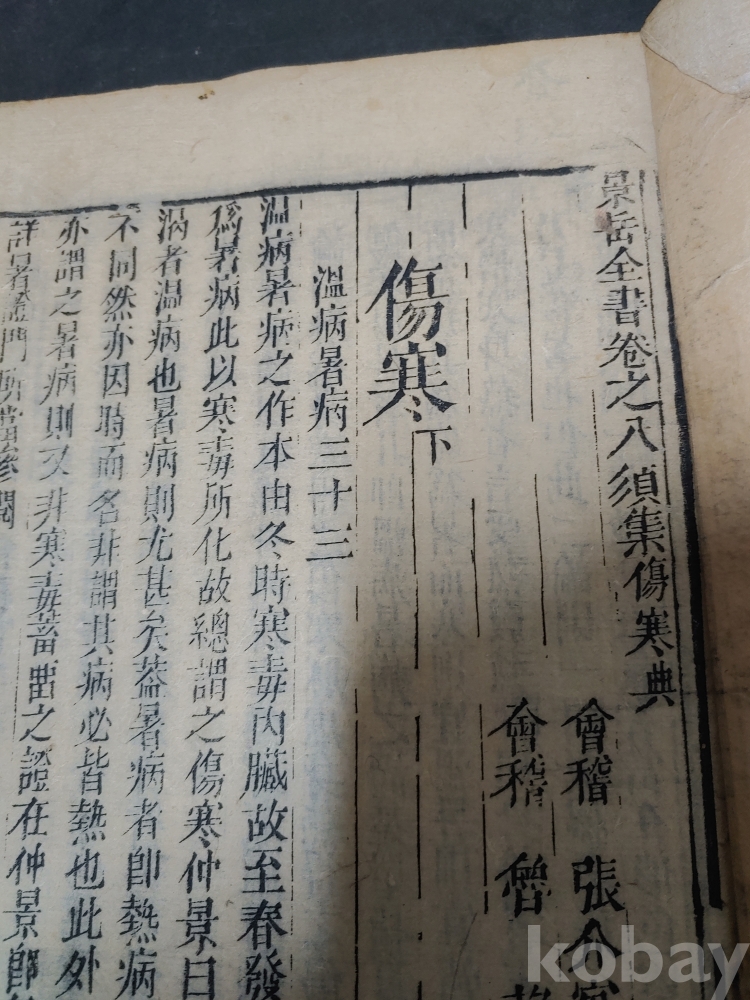 景岳全書卷之八須集傷寒典
會稽 張介
會稽 魯
傷寒下
溫病暑病三十三
温病暑病之作本由冬時寒毒內臟故至春發
爲暑病此以寒毒所化故總謂之傷寒仲景曰
渴者温病也暑病則尤甚矣葢暑病者卽熱病
不同然亦因時而名非謂其病必皆熱也此外
亦謂之暑病則又非寒毒蓄畱之證在仲景卽
詳暑證門所當參閱
kobay